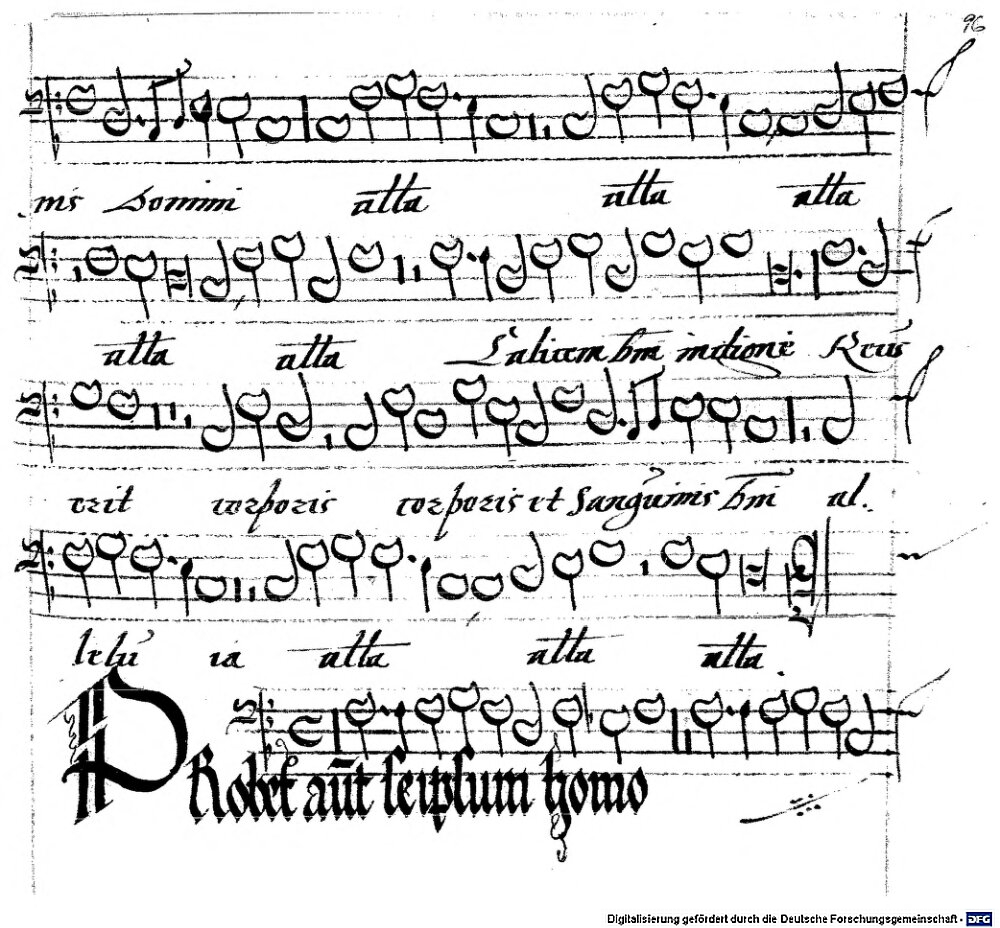 96
nis Domini alla alla alla
alla alla Calicem bm indione Reus
erit corporis corporis et Sanguinis bm al.
lelu ia alla alla alla.
PRobet aut seipsum homo
Digitalisierung gefördert durch die Deutsche Forschungsgemeinschaft - DFG